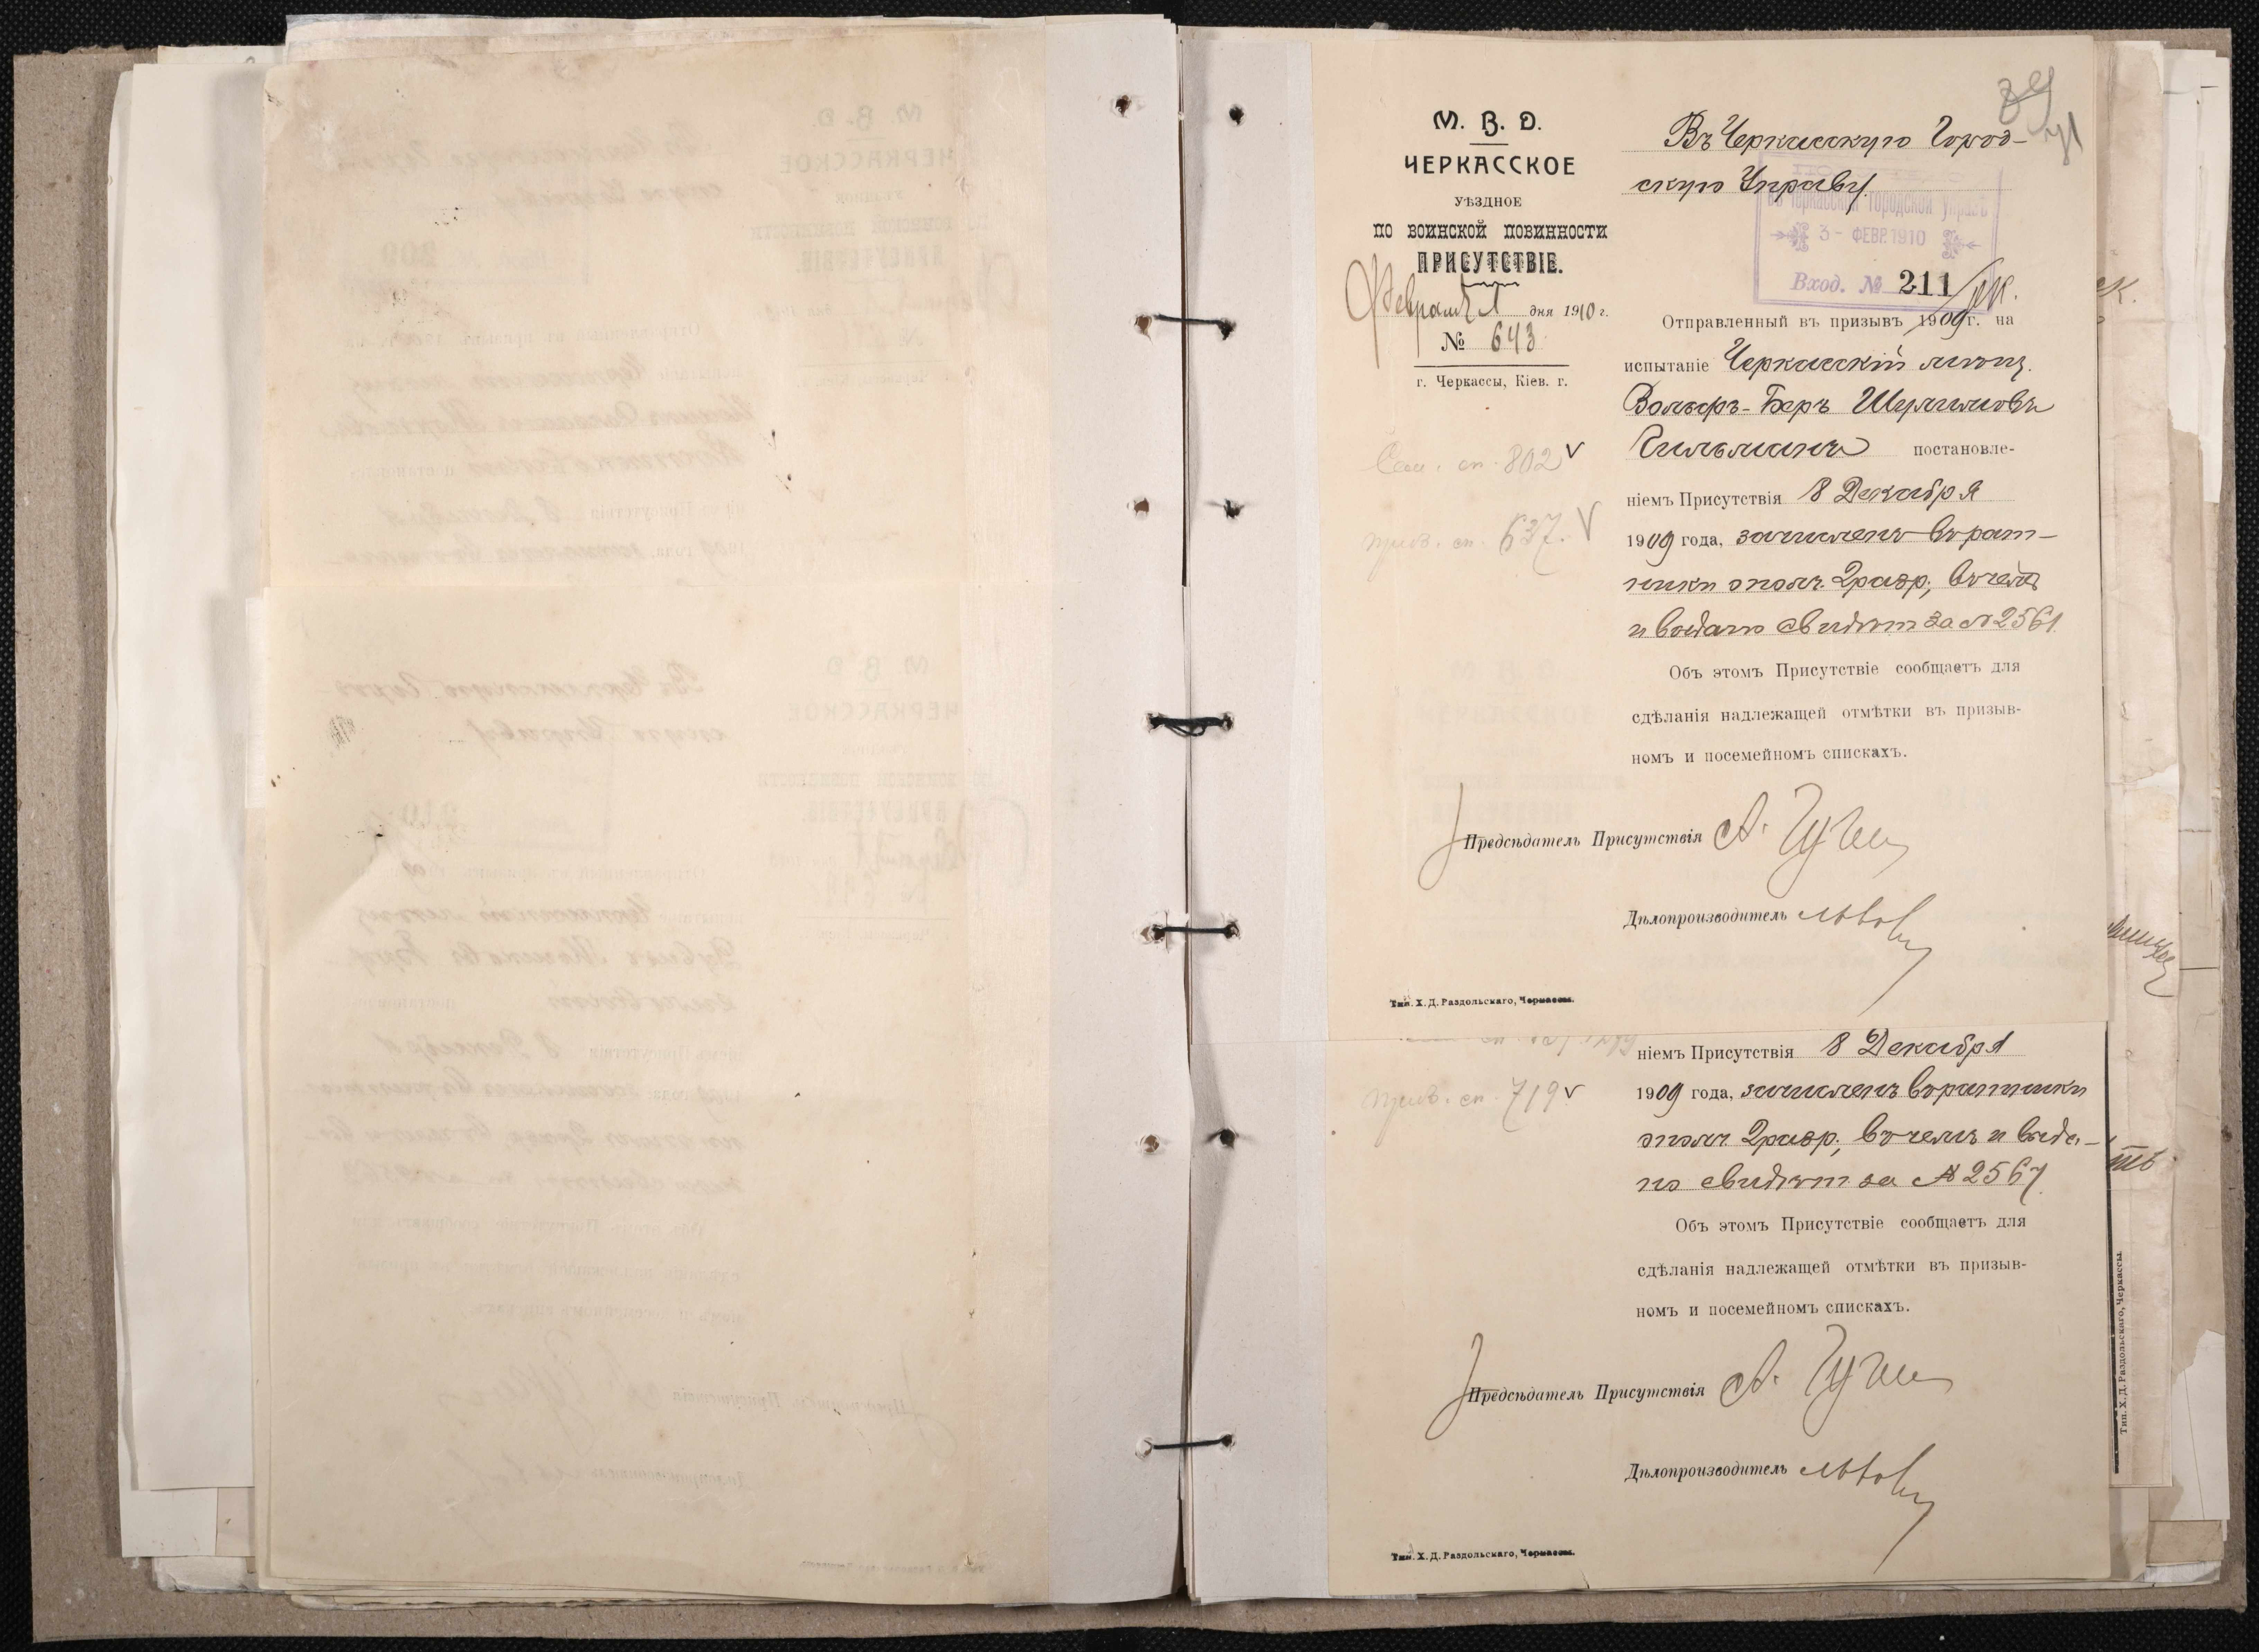 М. В. Д.
ЧЕРКАССКОЕ
УѢЗДНОЕ
ПО ВОИНСКОЙ ПОВИННОСТИ
ПРИСУТСТВІЕ.
Февраля 1 дня 1910 г.
№ 643
г. Черкассы, Кіев. г.
Сем. сп. 802 v
приз. сп. 637. v
39
Въ Черкасскую Город-
скую Управу.
въ Черкасской городской управѣ
3- ФЕВР. 1910
Вход. № 211
Отправленный въ призывъ 1909 г. на
испытаніе Черкасскій мѣщ.
Вольфъ-Беръ Шулимовъ
постановле-
ніемъ Присутствія 8 Декабря
1909 года, зачисленъ въ рат-
ники ополч. 2 разр., въ чемъ
и выдано свидѣт за № 2561.
Объ этомъ Присутствіе сообщаетъ для
сдѣланія надлежащей отмѣтки въ призыв-
номъ и посемейномъ спискахъ.
Предсѣдатель Присутствія
Дѣлопроизводитель
Тип. Х. Д. Раздольскаго, Черкассы.
приз. сп. 719 v
ніемъ Присутствія 8 Декабря
1909 года, зачисленъ въ ратники
ополч 2 разр., въ чемъ и выда-
но свидѣт за № 2567.
Объ этомъ Присутствіе сообщаетъ для
сдѣланія надлежащей отмѣтки въ призыв-
номъ и посемейномъ спискахъ.
Предсѣдатель Присутствія
Дѣлопроизводитель
Тип. Х. Д. Раздольскаго, Черкассы.
Тип. Х. Д. Раздольскаго, Черкассы.